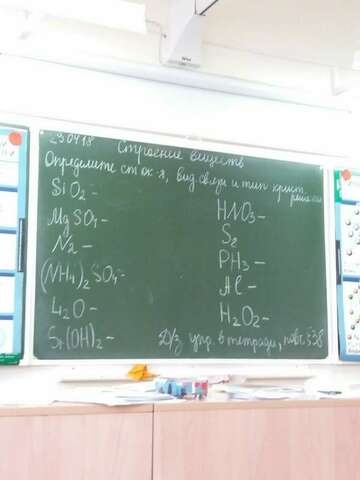 23.04.18
Строение веществ
Определите ст. ок-я, вид связи и тип крист.
решетки
SiO2 -
MgSO4 -
N2 -
(NH4)2SO4 -
Li2O -
Sr(OH)2 -
HNO3 -
S8
PH3 -
Al -
H2O2 -
Д/з упр. в тетради, повт. §38